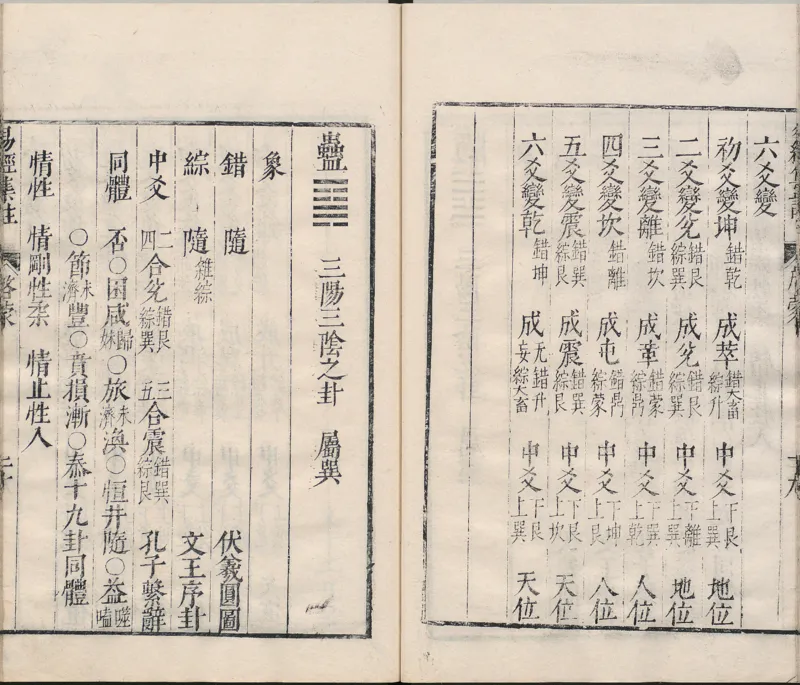 六爻變
初爻變坤 錯乾 成萃 錯大畜綜升 中爻 下艮上巽 地位
二爻變兌 錯艮綜巽 成兌 錯艮綜巽 中爻 下離上巽 地位
三爻變離 錯坎 成革 錯蒙綜鼎 中爻 下巽上乾 人位
四爻變坎 錯離 成屯 錯鼎綜蒙 中爻 下坤上艮 人位
五爻變震 錯巽綜艮 成震 錯巽綜艮 中爻 下艮上坎 天位
六爻變乾 錯坤 成无妄 錯升綜大畜 中爻 下艮上巽 天位
蠱 ䷑ 三陽三陰之卦 屬巽
象
錯 隨 伏羲圓圖
綜 隨 雜綜 文王序卦
中爻 二四合兌 錯艮綜巽 三五合震 錯巽綜艮 孔子繫辭
同體 否○困咸歸妹○旅未濟渙○恒井隨○益噬嗑
○節未濟豐○賁損漸○泰十九卦同體
情性 情剛性柔 情止性入
易經集註 啓蒙